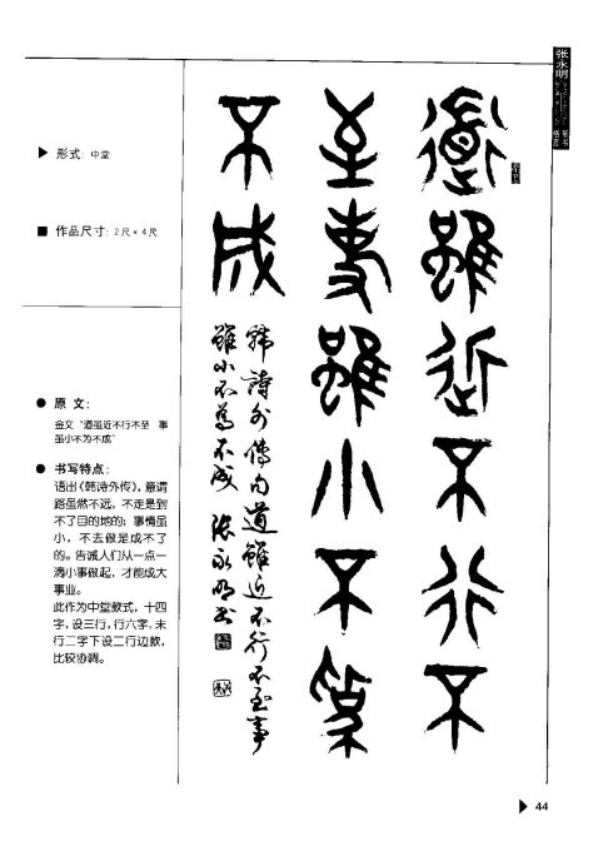 张永明
篆书
格言
▶ 形式: 中堂
■ 作品尺寸: 2尺×4尺
● 原 文:
金文“道虽近不行不至 事
虽小不为不成”
● 书写特点:
语出《韩诗外传》，意谓
路虽然不远，不走是到
不了目的地的；事情虽
小，不去做是成不了
的。告诫人们从一点一
滴小事做起，才能成大
事业。
此作为中堂款式，十四
字，设三行，行六字，末
行二字下设二行边款，
比较协调。
道雖近不行不
至事雖小不為
不成
韓詩外傳句道雖近不行不至事
雖小不為不成 張永明书
▶ 44